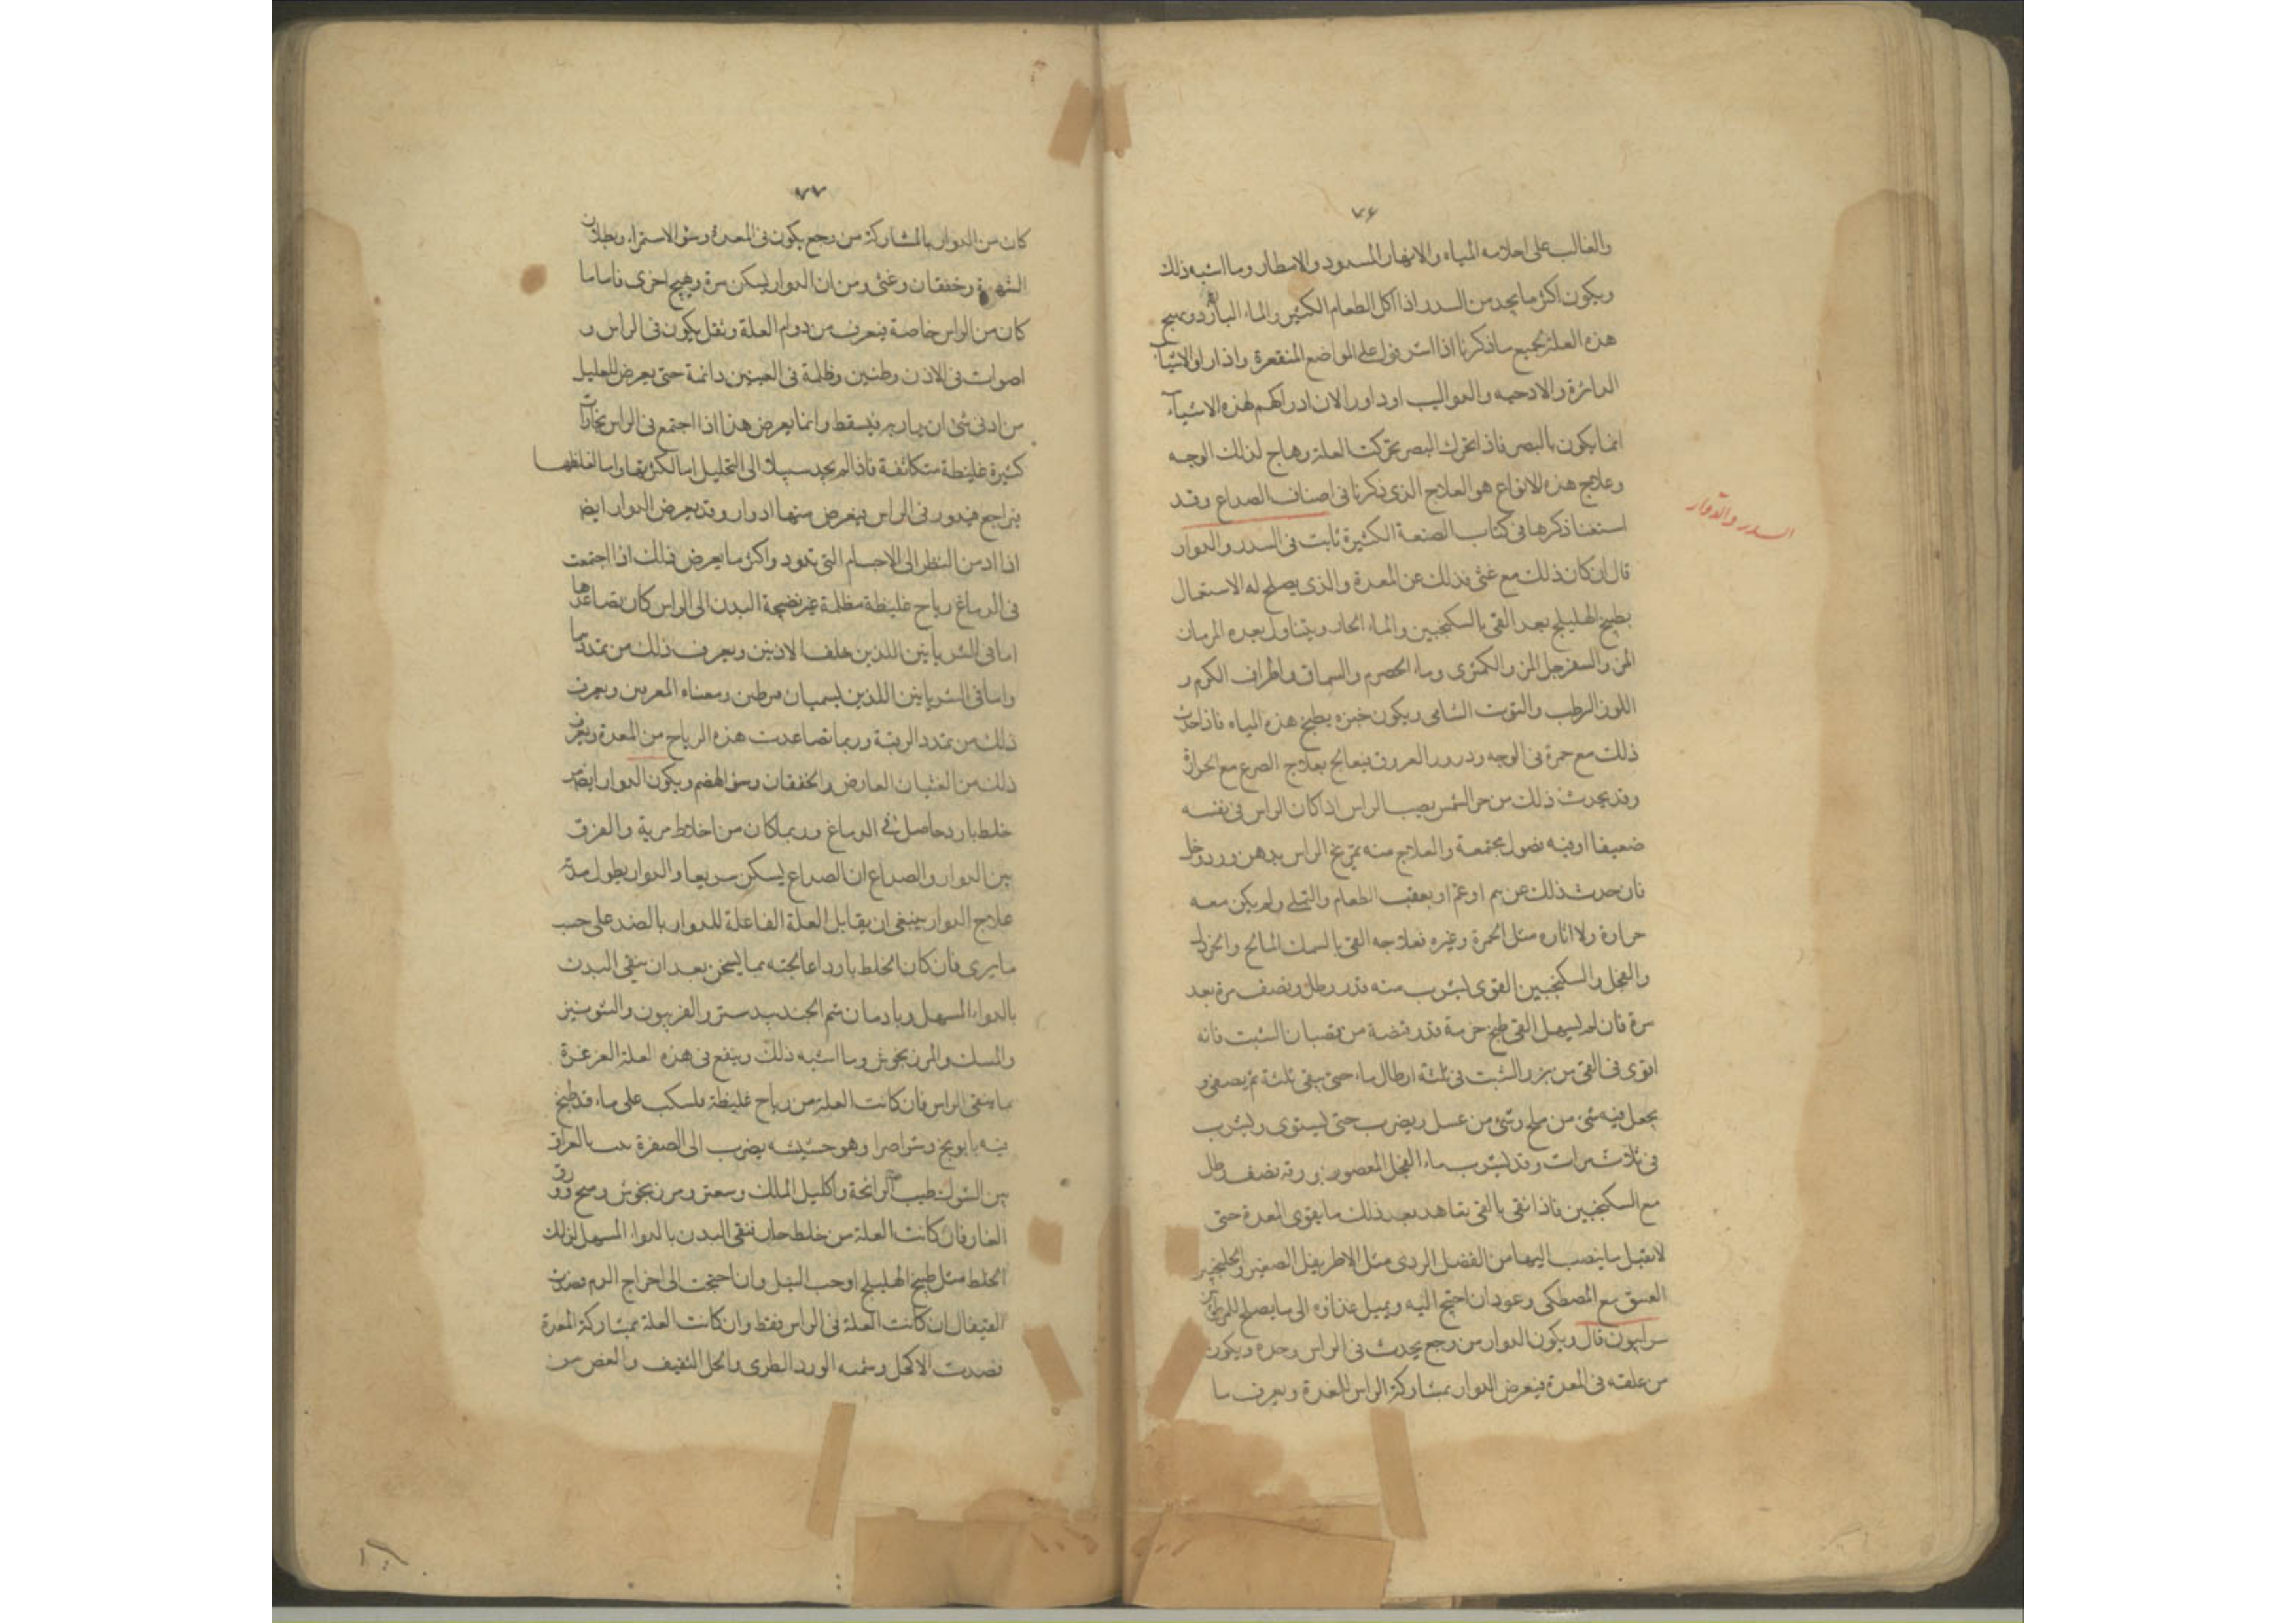 ٧٦
والغالب على احلامه المياه والانهار المسدود والامطار وما اشبه ذلك
ويكون اكثر ما يجد من السدر اذا اكل الطعام الكثير والماء البارد ويهيج
هذه العلة بجميع ما ذكرنا اذا اشرفوا على المواضع المنقعرة واذا راوا الاشياء
الدائرة والادحيه والدواليب او داوا لان ادراكهم لهذه الاشياء
انما يكون بالبصر فاذا تحرك البصر تحركت العلة وهاج لذلك الوجه
وعلاج هذه الانواع هو العلاج الذى ذكرنا فى اصناف الصداع وقد
استغنا ذكرها فى كتاب الصنعة الكثيرة ثابت فى السدر والدوار
السدر والدوار
قال ان كان ذلك مع غثى فذلك عن المعدة والذى يصلح له الاستعمال
بطبيخ الهليلج بعد القى بالسكنجبين والماء الحار ويتناول بعده الرمان
المز والسفرجل المز والكمثرى وماء الحصرم والسماق واطراف الكرم و
اللوز الرطب والتوت الشامى ويكون خبزه بطبخ هذه المياه فاذا حدث
ذلك مع حمرة فى الوجه ودرور العروق فيعالج بعلاج الصرع مع الحرارة
وقد يحدث ذلك من حر الشمس يصيب الراس اذا كان الراس فى نفسه
ضعيفا او فيه فضول مجتمعة والعلاج منه تمريخ الراس بدهن ورد وخل
فان حدث ذلك عن هم او غم او بعقب الطعام والتملى ولم يكن معه
حرارة ولا اثاره مثل الحمرة وغيره فعلاجه القى بالسمك المالح والخردل
والفجل والسكنجبين القوى ليشرب منه قدر رطل ونصف مرة بعد
مرة فان لم يسهل القى طبخ حزمة قدر قبضة من قضبان الشبت فانه
اقوى فى القى من بزر الشبت فى ثلثة ارطال ماء حتى يبقى ثلثة ثم يصفى و
يجعل فيه شئ من ملح وشئ من عسل ويضرب حتى يستوى ويشرب
فى ثلاث مرات وقد يشرب ماء الفجل المعصور بورقه نصف رطل
مع السكنجبين فاذا نقى بالقى تعاهد بعد ذلك ما يقوى المعدة حتى
لا تقبل ما ينصب اليها من الفضل الردى مثل الاطريفل الصغير والجلنجبين
العتيق مع المصطكى وعود ان احتيج اليه ويميل غذاؤه الى ما يصلح للمرطوبين
سرابيون قال ويكون الدوار من وجع يحدث فى الراس وحده ويكون
من علقه فى المعدة فيعرض الدوار بمشاركة الراس المعدة ويعرف ما
٧٧
كان من الدوار بالمشاركة من وجع يكون فى المعدة وسؤ الاستمراء وبطلان
الشهوة وخفقان وغثى ومن ان الدوار يسكن مرة ويهيج اخرى فاما ما
كان من الراس خاصة فيعرف من دوام العلة وثقل يكون فى الراس و
اصوات فى الاذن وطنين وظلمة فى العينين دائمة حتى يعرض للعليل
من ادنى شئ ان يدار به فيسقط وانما يعرض هذا اذا اجتمع فى الراس بخارات
كثيرة غليظة متكاثفة فاذا لم يجد سبيلا الى التحليل اما لكثرتها واما لغلظها
يتراجع فيدور فى الراس فيعرض منها ادوار وقد يعرض الدوار ايضا
اذا ادمن النظر الى الاجسام التى تدور واكثر ما يعرض ذلك اذا اجتمعت
فى الدماغ رياح غليظة مظلمة غير نضيجة البدن الى الراس كان تصاعدها
اما فى الشريانين اللذين خلف الاذنين ويعرف ذلك من تمددها
واما فى الشريانين اللذين يسميان مرطن ومعناه المعرس ويعرف
ذلك من تمدد الرقبة وربما تصاعدت هذه الرياح من المعدة ويعرف
ذلك من الغثيان العارض والخفقان وسؤ الهضم ويكون الدوار ايضا من
خلط بارد حاصل فى الدماغ وربما كان من اخلاط مرية والفرق
بين الدوار والصداع ان الصداع يسكن سريعا والدوار يطول مدته
علاج الدوار ينبغى ان يقابل العلة الفاعلة للدوار بالضد على حسب
ما يرى فان كان الخلط باردا عالجته بما يسخن بعد ان ينقى البدن
بالدواء المسهل وبادمان شم الجندبيدستر والفربيون والشونيز
والمسك والمرزنجوش وما اشبه ذلك وينفع فى هذه العلة الغرغرة
بما ينقى الراس فان كانت العلة من رياح غليظة فلسكب على ماء قد طبخ
فيه بابونج وشواصرا وهو حشيشه يضرب الى الصفرة بالعراق
بين الشوك طيب الرائحة واكليل الملك وسعتر ومرزنجوش وشيح وورق
الغار فان كانت العلة من خلط حار فنقى البدن بالدواء المسهل لذلك
الخلط مثل طبيخ الهليلج او حب النيل وان احتجت الى اخراج الدم فصدت
القيفال ان كانت العلة فى الراس فقط وان كانت العلة بمشاركة المعدة
فصدت الاكحل وشمه الورد الطرى والخل الثقيف والعض من